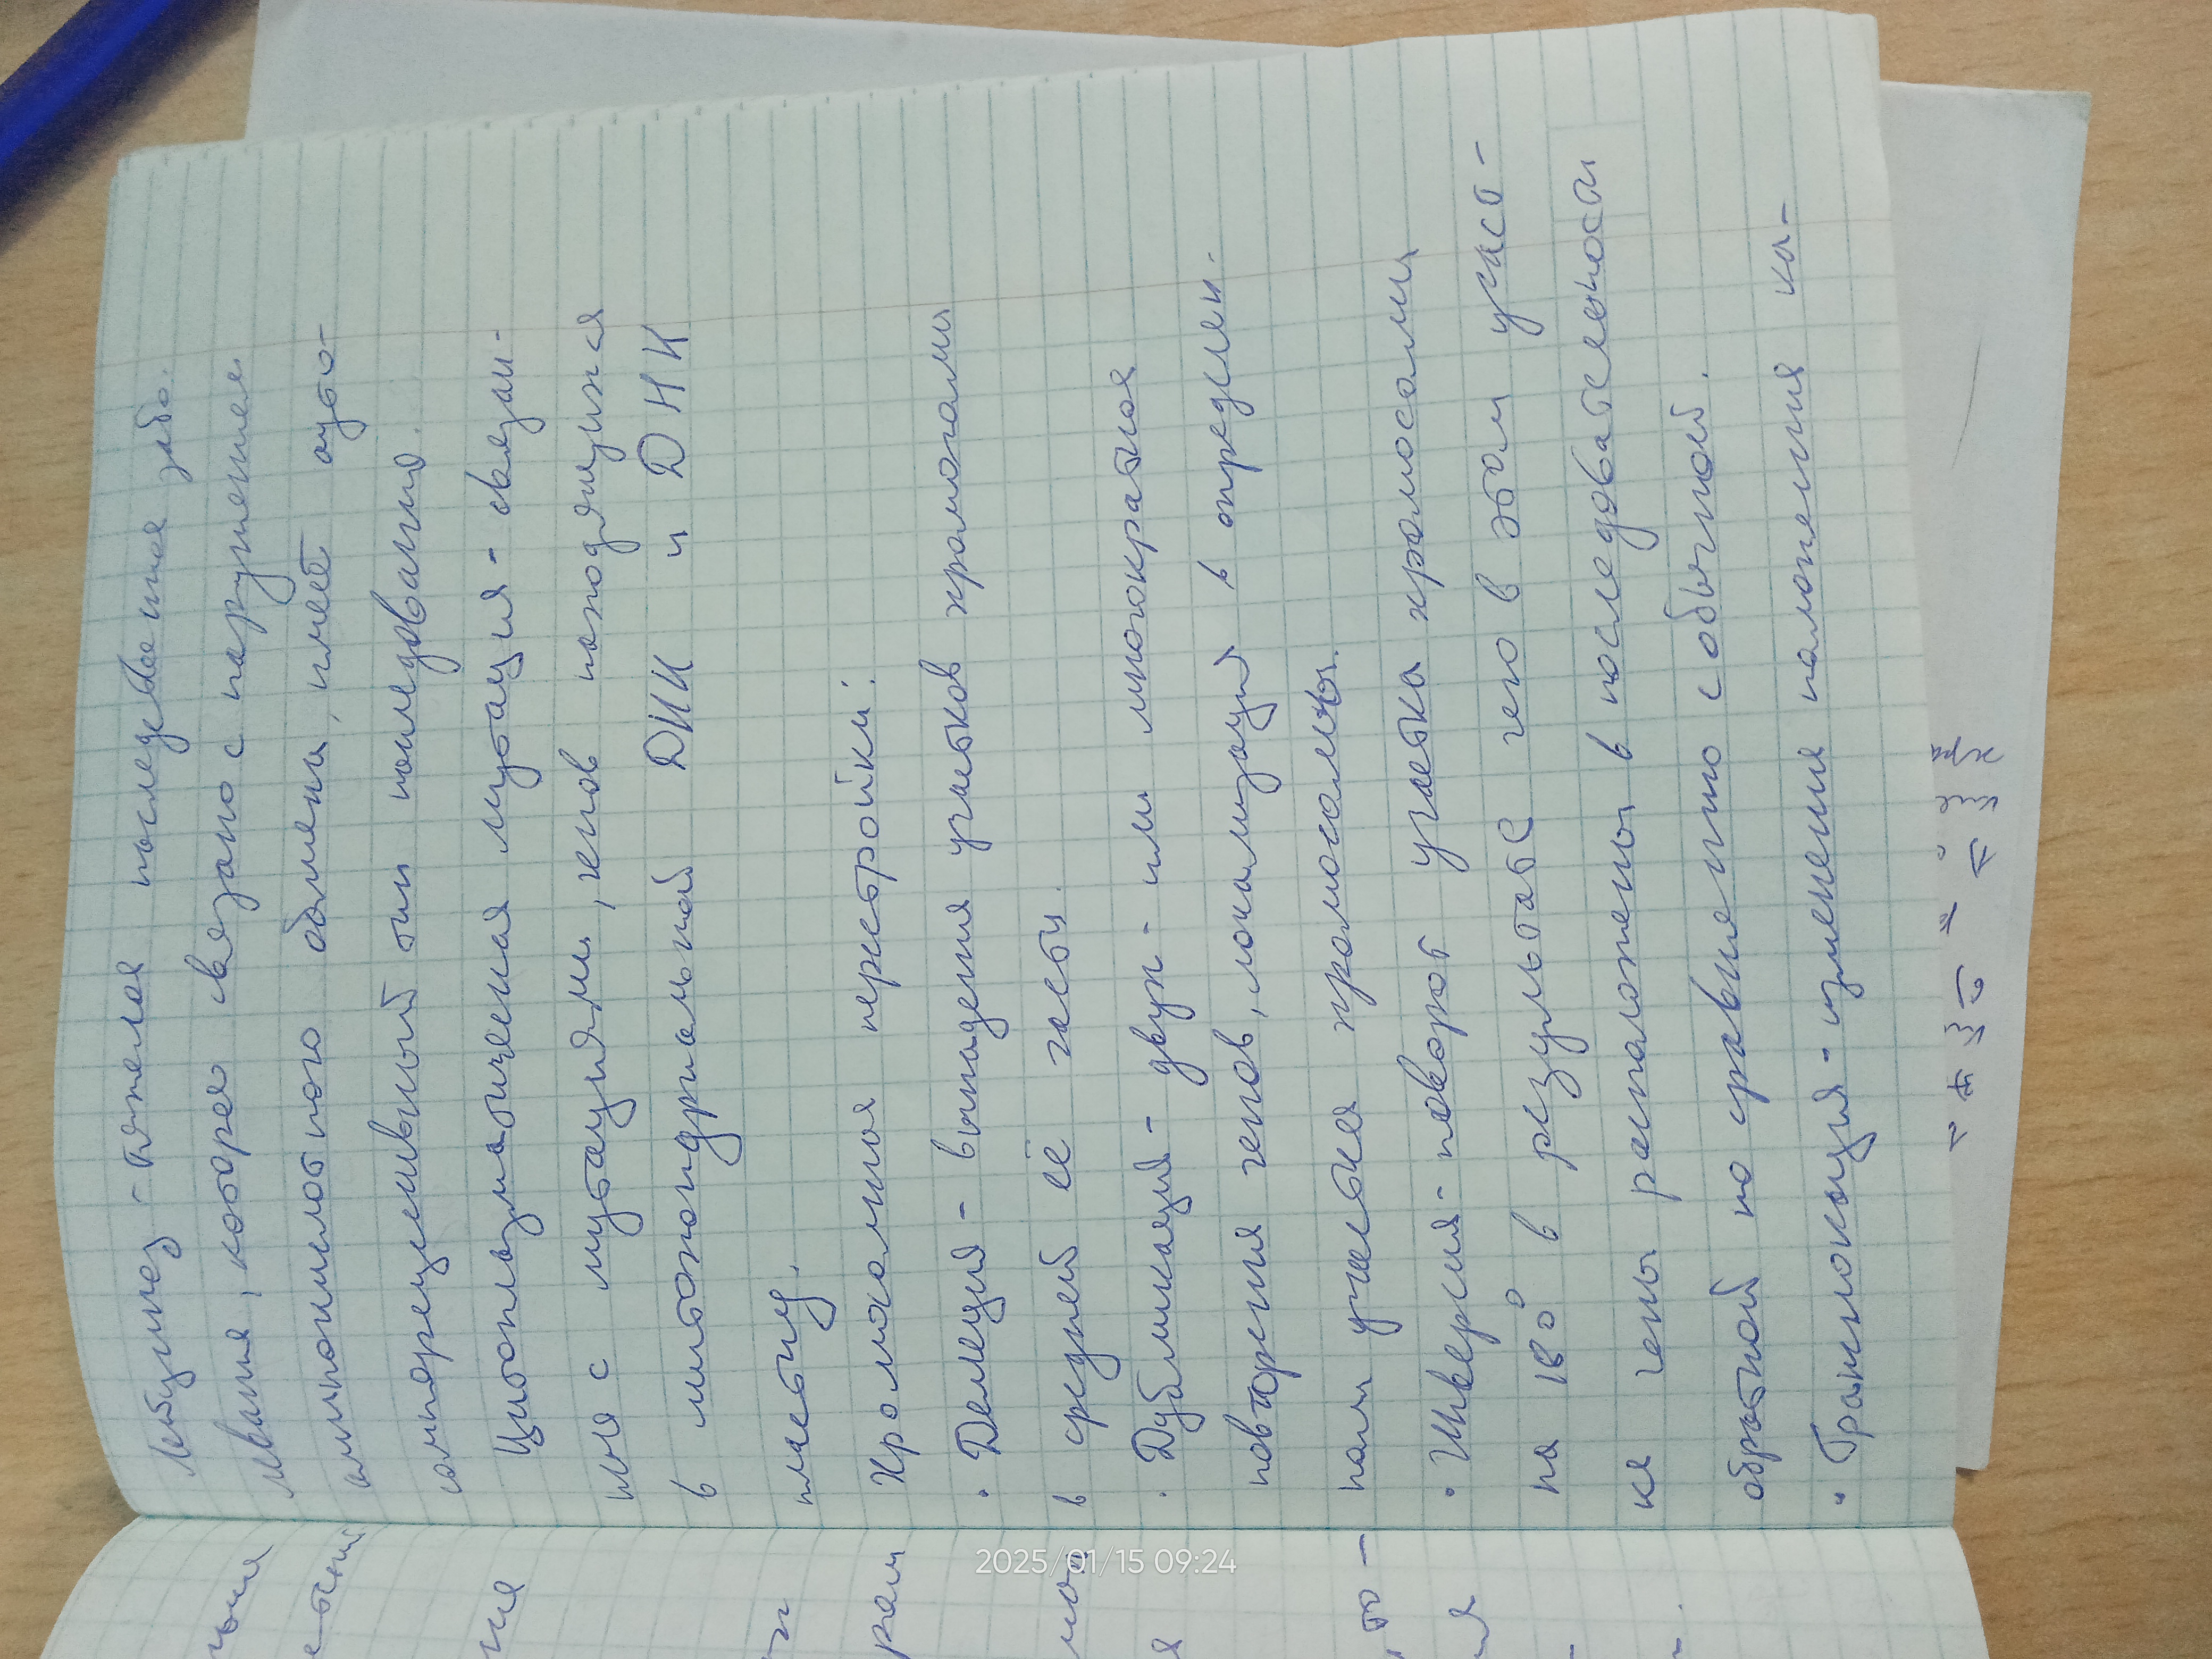 - тяжелая наследственное забо-
левания, которая связано с нарушением
аминокислотного обмена, имеет ауто-
сомнорецессивный тип наследования.
Цитоплазматическая мутация - связан-
ная с мутациями, генов находящихся
в митохондриальной ДНК и ДНК
пластид.
Хромосомная перестройки:
• Делеция - выпадения участков хромосомы
в средней её части.
• Дубликация - двух- или многократная
повторения генов, локализация в определен-
ном участке хромосомы.
• Инверсия - поворот участка хромосомы
на 180° в результате чего в этом участ-
ке гены расположены в последовательности
обратной по сравнению с обычной.
• Транслокация - изменения положения ка-
2025/01/15 09:24